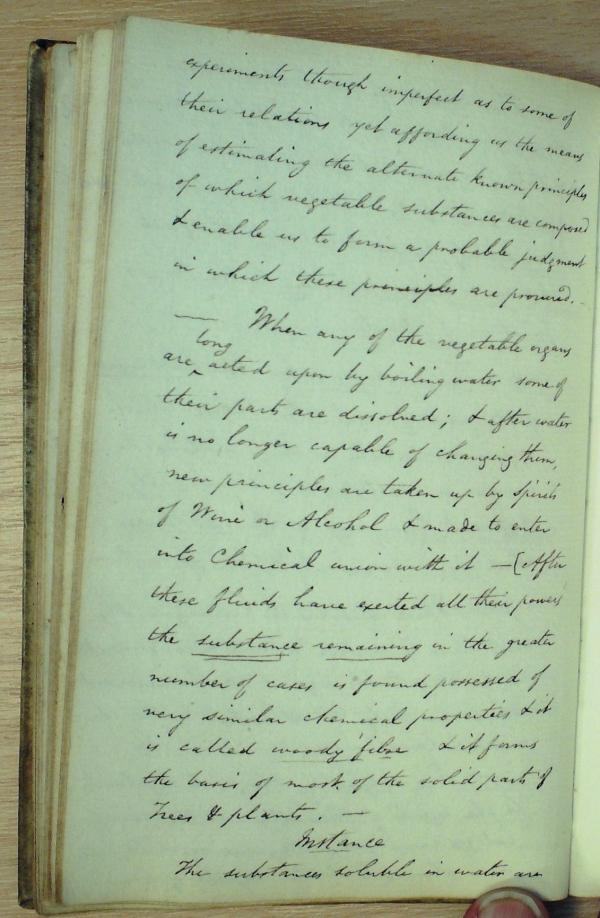 experiments though imperfect as to some of
their relations yet affording us the means
of estimating the alternate known principles
of which vegetable substances are composed
& enable us to form a probable judgment
in which these principles are procured.
— When any of the vegetable organs
long
are ^ acted upon by boiling water some of
their parts are dissolved; & after water
is no longer capable of changing them,
new principles are taken up by Spirits
of Wine or Alcohol & made to enter
into Chemical union with it —[After
these fluids have exerted all their powers
the substance remaining in the greater
number of cases is found possessed of
very similar chemical properties & it
is called woody fibre & it forms
the basis of most of the solid parts of
Trees & plants. —
Instance
The substances soluble in water are